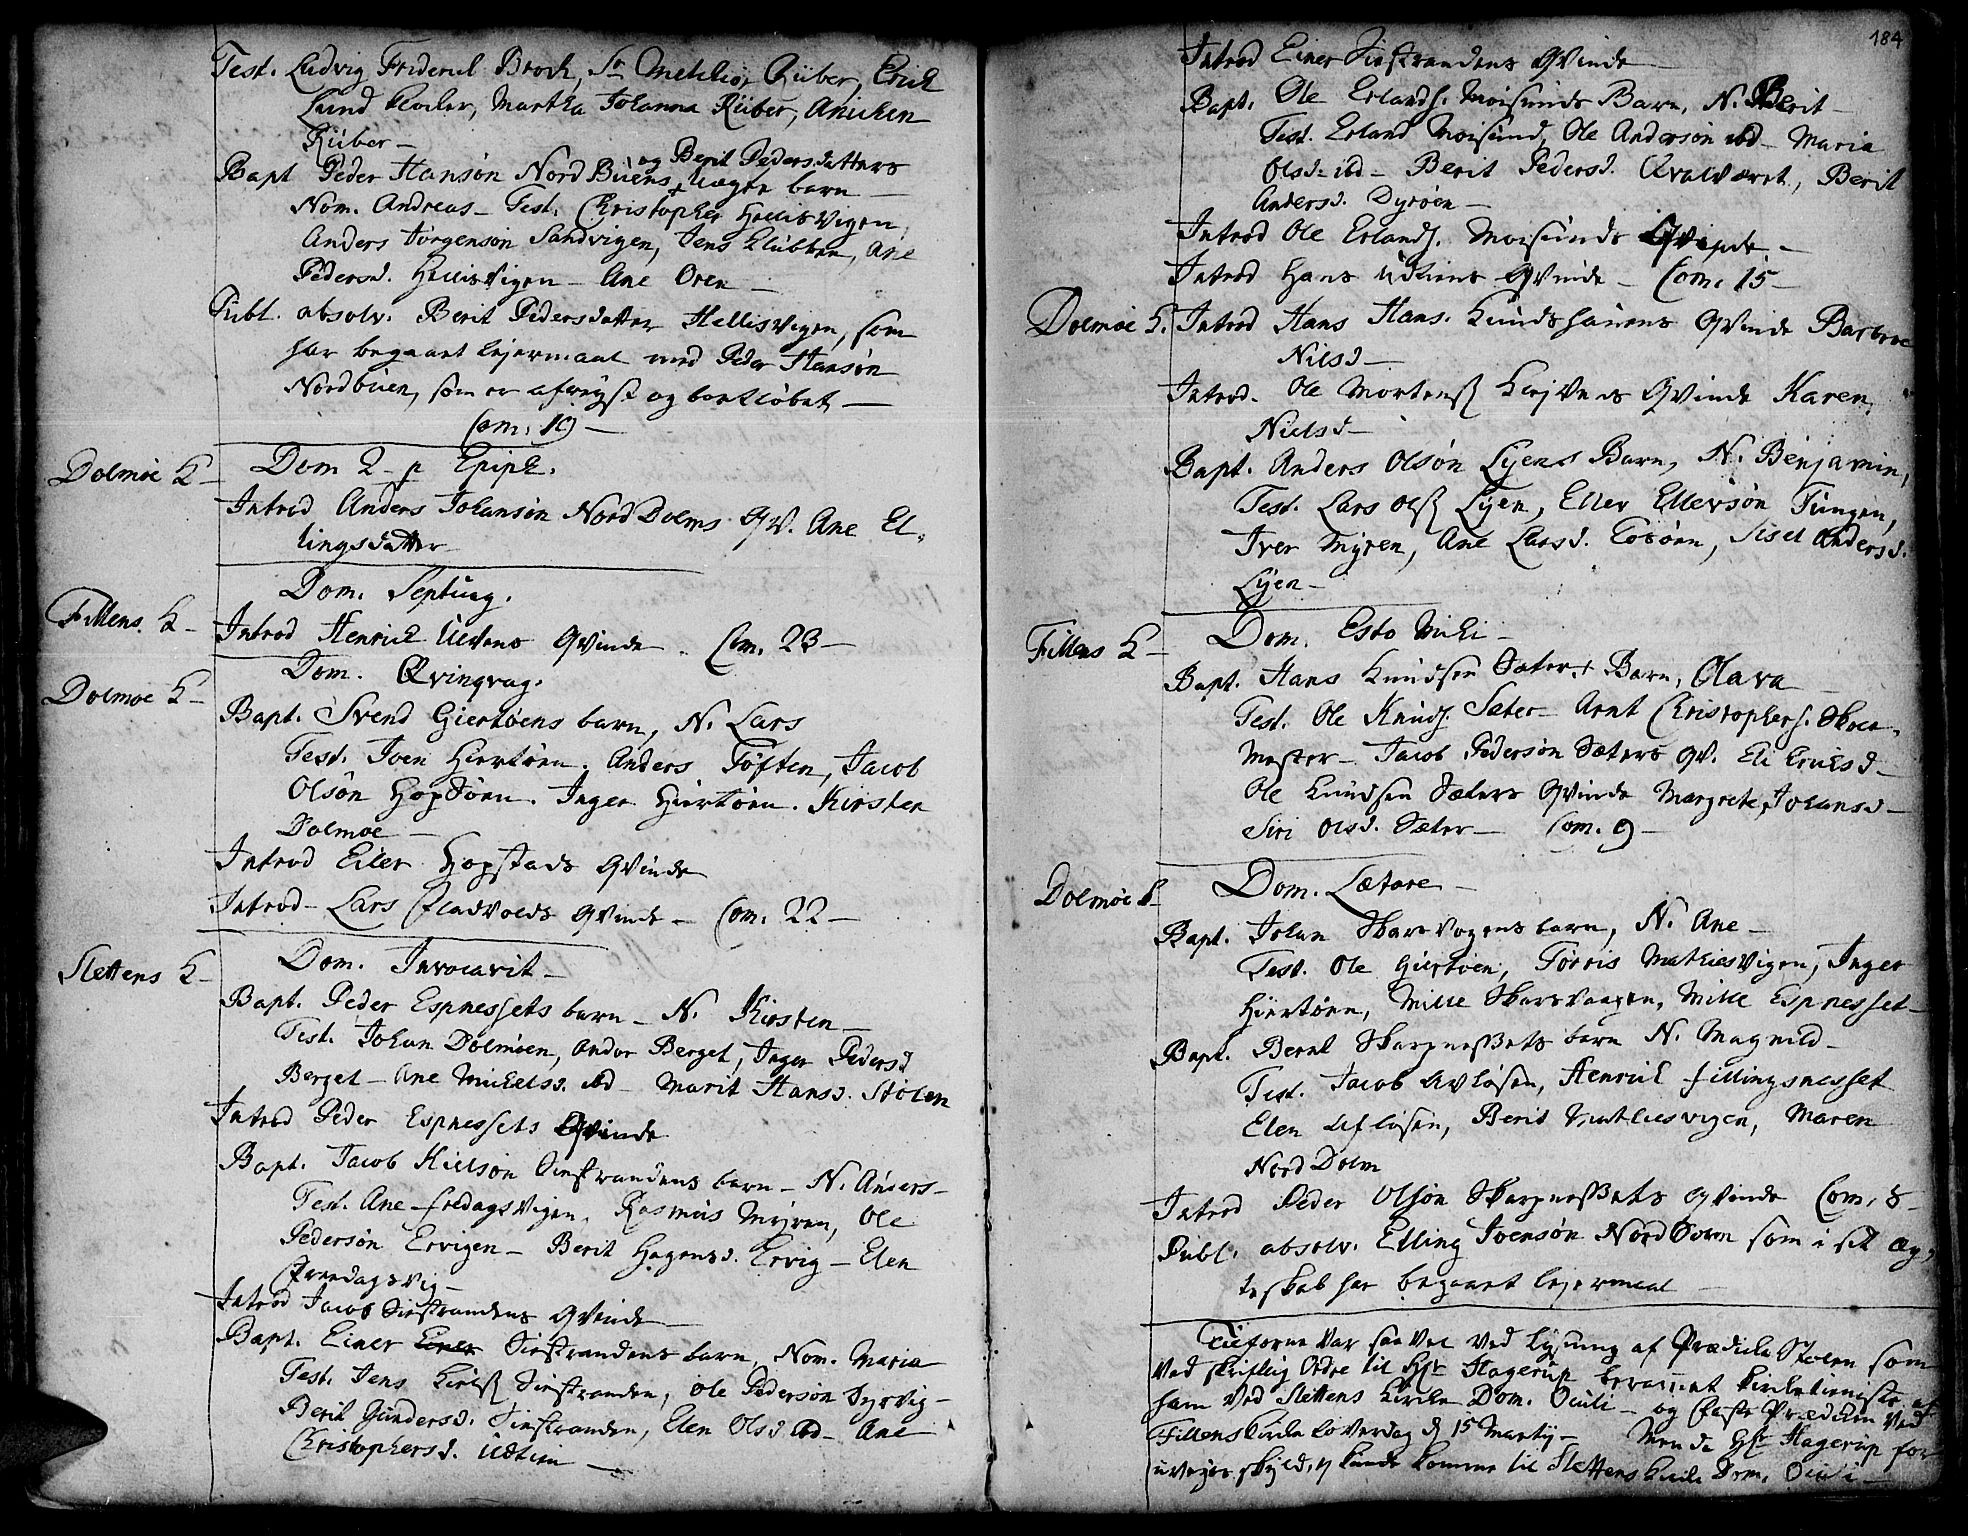 Test. Ludvig Friderich Brock, Sr Melchior Rüber, Erich
Lund Klocker, Martha Johanna Rüber, Anichen
Rüber —
Bapt Peder Hansøn Nord Büens og Berit Pedersdatters
Uægte barn —
Nom. Andreas — Test. Christopher Hellisvigen,
Anders Jørgensøn Sandvigen, Jens Klubben, Ane
Pedersd. Hellisvigen — Ane Oren —
Publ. absolv. Berit Pedersdatter Hellisvigen, som
har begaaet lejermaal med Peder Hansøn
Nordbüen, som er afvigst og bortløbet —
Com. 10 —
Dolmøe K — Dom 2 p Epiph.
Introd Anders Johansøn Nord Dolms Qv. Ane El-
lingsdatter
Dom. Septuag.
Fillens K — Introd Henrich Ulvens Qvinde. Com. 23 —
Dolmøe K — Dom. Qvinqvag.
Bapt. Svend Giertøens barn, N. Lars
Test. Joen Hiertøen. Anders Tøften, Jacob
Olsøn Hopsøen. Inger Hiertøen. Kirsten
Dolmøe —
Introd Eiler Hopstads Qvinde
Introd — Lars Fladvolds Qvinde — Com. 22 —
Slettens K — Dom. Invocavit —
Bapt. Peder Espnessets barn — N. Kirsten —
Test. Johan Dolmøen, Andor Berget, Inger Pedersd
Berget — Ane Michelsd. ibd — Marit Hansd. Stølen
Introd Peder Espnessets Qvinde
Bapt. Jacob Nielsøn Sinstrandens barn — N. Anders —
Test. Ane Fredagsvigen. Rasmus Myren, Ole
Pedersøn Ervigen — Berit Hagensd. Ervig — Elen
Fredagsvig —
Introd Jacob Sinstrandens Qvinde —
Bapt. Einer Einer Sinstrandens barn, Nom. Maria
Test. Jens Sinstranden, Ole Pedersøn Dyrvig —
Berit Gundersd. Sinstranden, Elen Olsd ibd — Ane
Christophersd. Udtiun —
184
Introd Einer Sinstrandens Qvinde —
Bapt. Ole Erlands. Moisunds Barn, N. Berit —
Test. Erland Moisund, Ole Andersøn ibd — Maria
Olsd. ibd — Berit Pedersd. Qvalværet, Berit
Andersd. Dyrøen —
Introd Ole Erlands. Moisunds Qvinde —
Introd Hans Udtiuns Qvinde — Com. 15 —
Dolmøe K. Introd Hans Hans. Knudshauens Qvinde Barbroe
Nielsd —
Introd. Ole Mortens Qvinde Karen
Nielsd —
Bapt. Anders Olsøn Lyens Barn, N. Benjamin,
Test. Lars Ols Lyen, Eller Ellersøn Tungen,
Iver Myren, Ane Larsd. Sisel Andersd.
Lyen —
Fillens K — Dom. Esto Mihi —
Bapt. Hans Knudsen Sæters Barn, Olava —
Test. Ole Knuds. Sæter — Arnt Christophers. Skoe-
mester — Jacob Pedersøn Sæters Qv. Eli Erichsd —
Ole Knudsen Sæters Qvinde Margrete Johansd —
Siri Olsd. Sæter — Com. 9 —
Dolmøe K — Dom. Lætare —
Bapt. Johan Skarsvogens barn, N. Ane —
Test. Ole Giertøen, Torris Mathiesvigen, Inger
Hiertøen, Mille Skarsvaagen, Mille Espnesset —
Bapt. Bernt Skarpnessets barn N. Magnild —
Test. Jacob Avløsen, Henrich Fillingsnesset
Elen Ulfløsen, Berit Mathiesvigen, Maren
Nord Dolm
Introd Peder Olsøn Skarpnessets Qvinde Com. 8 —
Publ. absolv. Elling Joensøn Nord Dolm som i sit Æg-
teskab har begaaet lejermaal —
Tilforne var saa vel ved lysning af Prædicke Stolen som
ved skriftlig Ordre til Hr Hagerup beramet kirketieniste af
ham ved Slettens Kircke Dom. Oculi — og Faste Prædicken ved
Fillens Kircke Løverdag d 15 Martij — Men da Hr Hagerup for
uveyrs skyld ej kunde komme til Slettens Kirke Dom. Oculi —